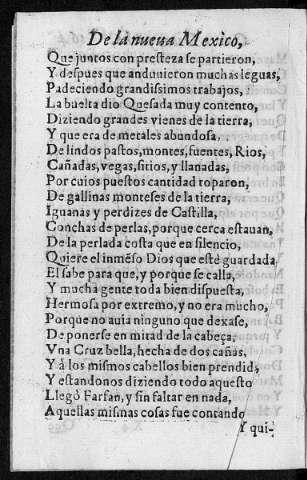 De la nueua Mexico,
Que juntos con presteza se partieron,
Y despues que anduuieron muchas leguas,
Padeciendo grandissimos trabajos,
La buelta dio Quesada muy contento,
Diziendo grandes vienes de la tierra,
Y que era de metales abundosa.
De lindos pastos, montes, fuentes, Rios,
Cañadas, vegas, sitios, y llanadas,
Por cuios puestos cantidad toparon,
De gallinas monteses de la tierra,
Iguanas y perdizes de Castilla,
Conchas de perlas, porque cerca estauan,
De la perlada costa que en silencio,
Quiere el inmẽso Dios que estè guardada,
El sabe para que, y porque se calla,
Y mucha gente toda bien dispuesta,
Hermosa por extremo, y no era mucho,
Porque no auia ninguno que dexase,
De ponerse en mitad de la cabeça,
Vna Cruz bella, hecha de dos cañas,
Y à los mismos cabellos bien prendida,
Y estandonos diziendo todo aquesto
Llegò Farfan, y sin faltar en nada,
Aquellas mismas cosas fue contando
Y qui-